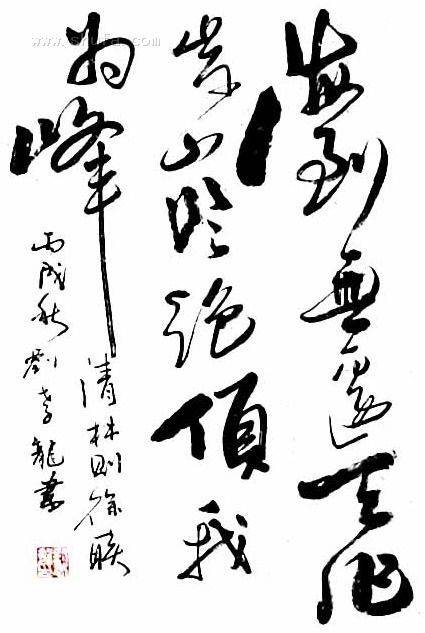 海到無邊天作
岸山臨絕頂我
為峰
清林則徐聯
丙戌秋劉孝龍書